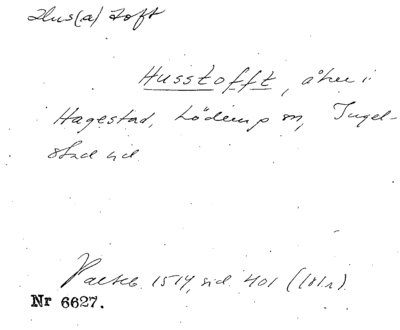 Hus(a) Toft
Husstofft, åker i
Hagestad, Löderup sn, Ingel-
stad hd.
Palteb. 1514, sid. 401 (Ldsa).
Nr 6627.